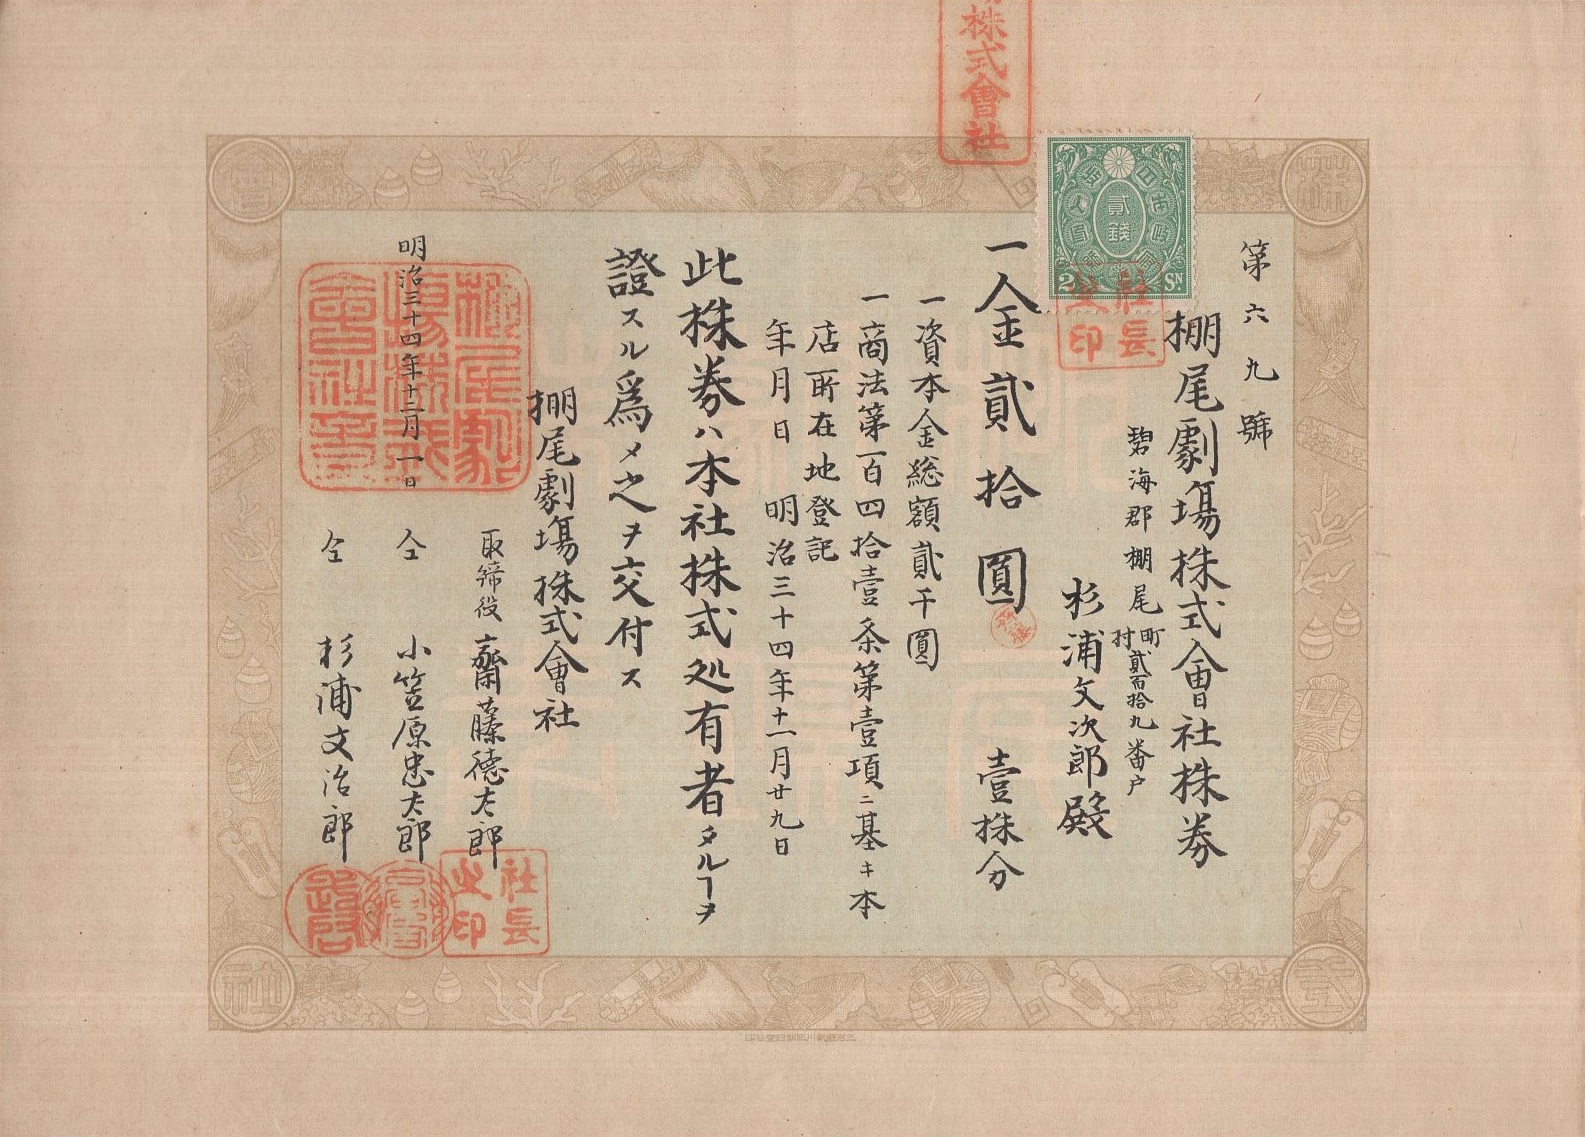 株式會社
第六九號
棚尾劇場株式會社株券
碧海郡棚尾町村貳百拾九番戸
杉浦文次郎殿
一金貳拾圓 壹株分
一資本金総額貳千圓
一商法第一百四拾壹条第壹項ニ基キ本
店所在地登記
年月日 明治三十四年十一月廿九日
此株券ハ本社株式処有者タルヿヲ
證スル爲メ之ヲ交付ス
棚尾劇場株式會社
取締役 齋藤徳太郎
仝 小笠原忠太郎
仝 杉浦文治郎
明治三十四年十二月一日
貳錢
2 SN.
社長之印
社長之印
棚尾劇場株式會社章
株式會社